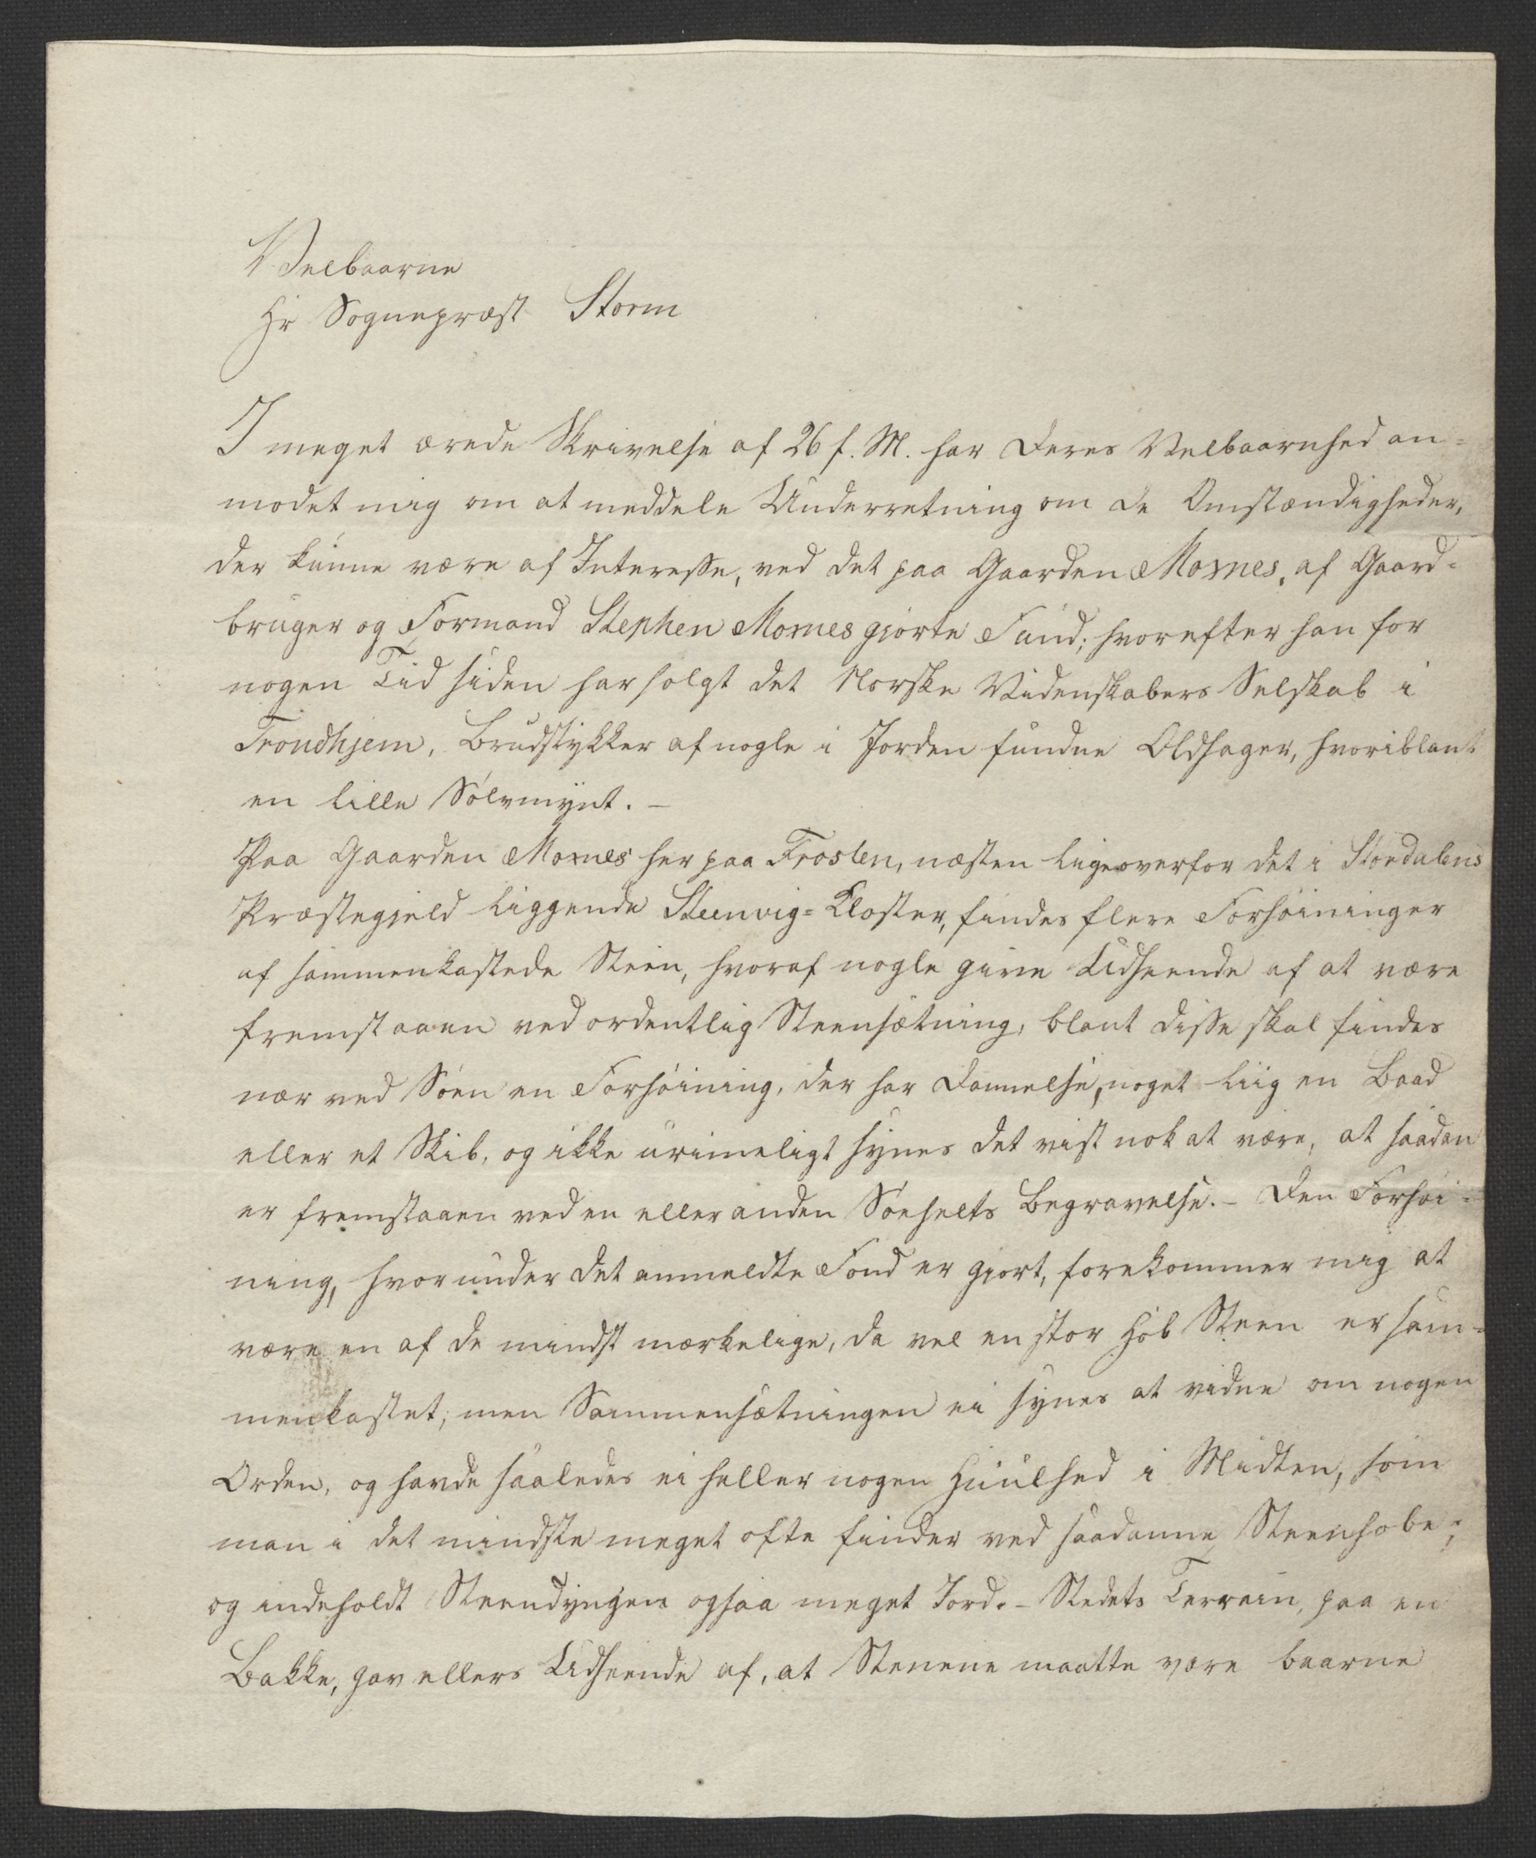 Velbaarne
Hr Sognepræst Storm
I meget ærede Skrivelse af 26 f. M. har Deres Velbaarnhed an=
modet mig om at meddele Underretning om de Omstændigheder,
der kunne være af Interesse, ved det paa Gaarden Moxnes, af Gaard=
bruger og Formand Stephen Moxnes gjorte Fund; hvorefter han for
nogen Tid siden har solgt det Norske Videnskabers Selskab i
Trondhjem, Brudstykker af nogle i Jorden fundne Oldsager, hvoriblant
en lille Sølvmynt. –
Paa Gaarden Moxnes her paa Frosten, næsten ligeoverfor det i Størdalens
Præstegjeld liggende Steenvig=Kloster, findes flere Forhøininger
af sammenkastede Steen, hvoraf nogle give Udseende af at være
fremstaaen ved ordentlig Steensætning, blant disse skal findes
nær ved Søen en Forhøining, der har Dannelse, noget liig en Baad
eller et Skib, og ikke urimeligt synes det vist nok at være, at saadan
er fremstaaen ved en eller anden Søehelts Begravelse. – Den Forhøi=
ning, hvorunder det anmeldte Fond er gjort, forekommer mig at
være en af de mindst mærkelige, da vel en stor Hob Steen er sam=
menkastet; men Sammensætningen ei synes at vidne om nogen
Orden, og havde saaledes ei heller nogen Huulhed i Midten, som
man i det mindste meget ofte finder ved saadanne Steenhobe;
og indeholdt Steendyngen ogsaa meget Jord. – Stedets Terrain, paa en
Bakke, gav ellers Udseende af, at Stenene maatte være baarne